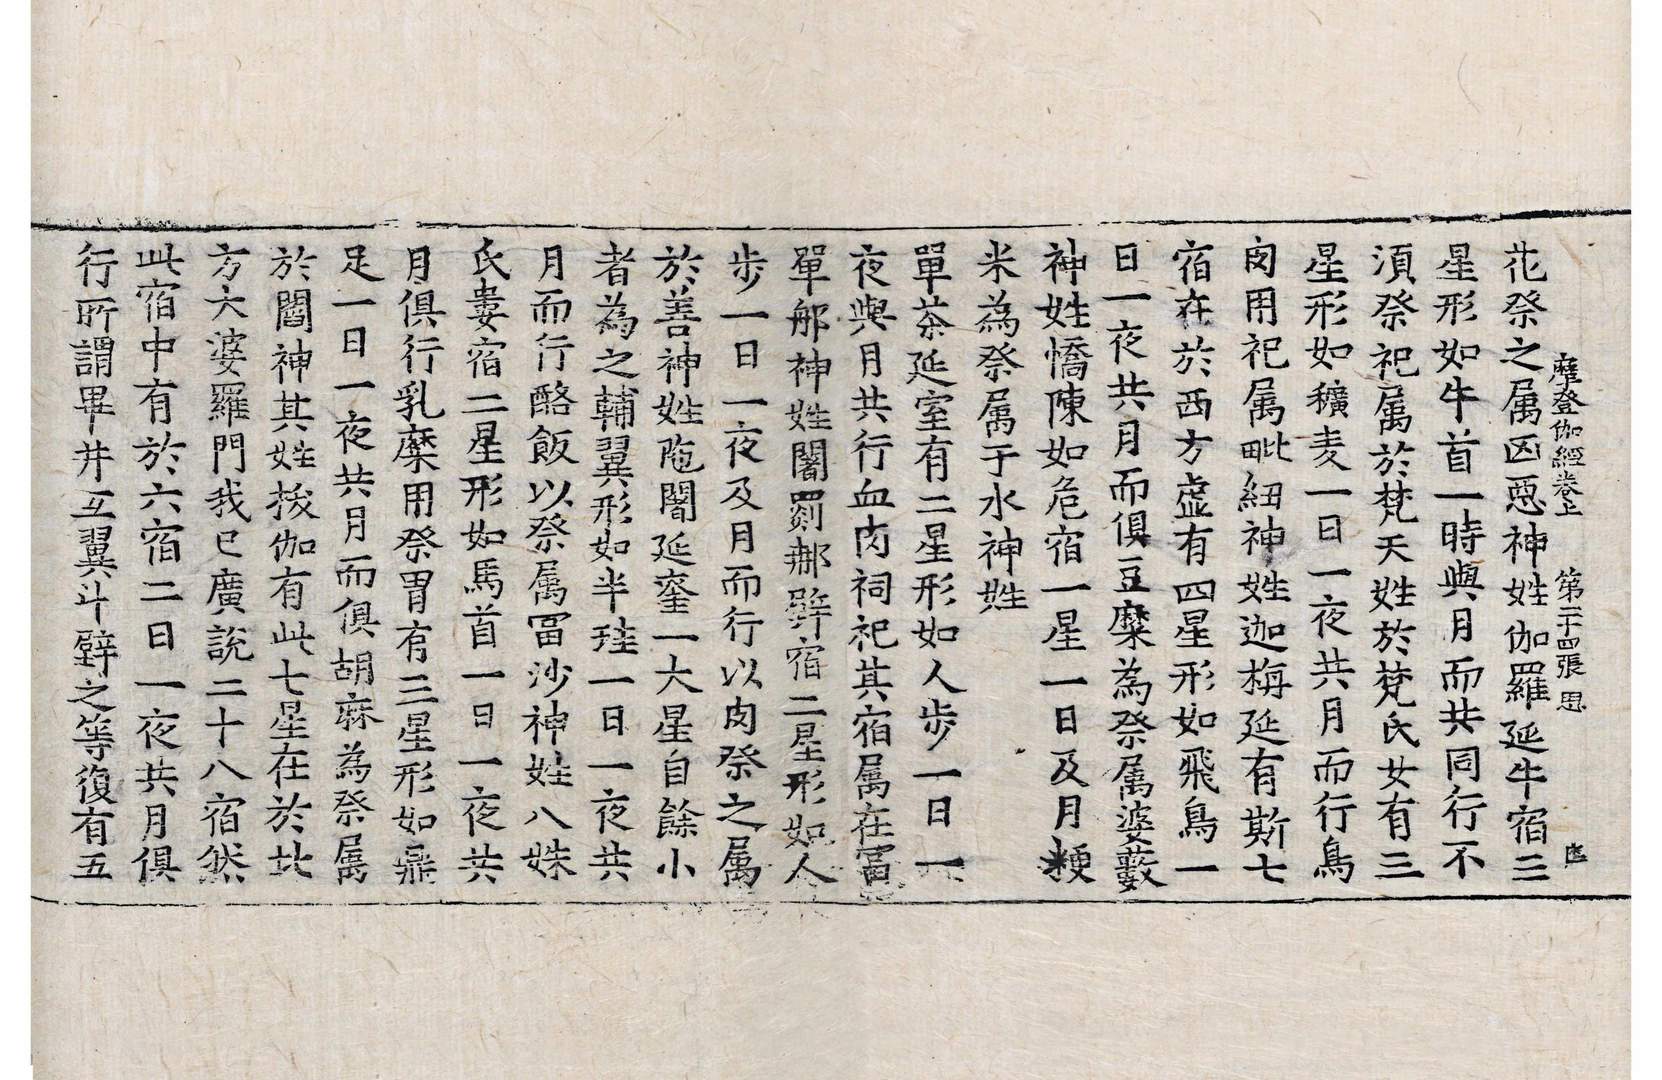 摩登伽經卷上 第二十四張 思
花祭之属凶惡神姓伽羅延牛宿三
星形如牛首一時與月而共同行不
湏祭祀属於梵天姓於梵氏女有三
星形如穬麦一日一夜共月而行鳥
肉用祀属毗紐神姓迦栴延有斯七
宿在於西方虚有四星形如飛鳥一
日一夜共月而俱豆糜為祭属婆藪
神姓憍陳如危宿一星一日及月粳
米為祭属于水神姓
單茶延室有二星形如人步一日一
夜與月共行血肉祠祀其宿属在富
單郍神姓闍罽郍壁宿二星形如人
步一日一夜及月而行以肉祭之属
於善神姓陁闍延奎一大星自餘小
者為之輔翼形如半珪一日一夜共
月而行酪飯以祭属富沙神姓八姝
氏婁宿二星形如馬首一日一夜共
月俱行乳糜用祭胃有三星形如鼎
足一日一夜共月而俱胡麻為祭属
於閻神其姓拔伽有此七星在於北
方大婆羅門我已廣說二十八宿然
此宿中有於六宿二日一夜共月俱
行所謂畢井互翼斗壁之等復有五